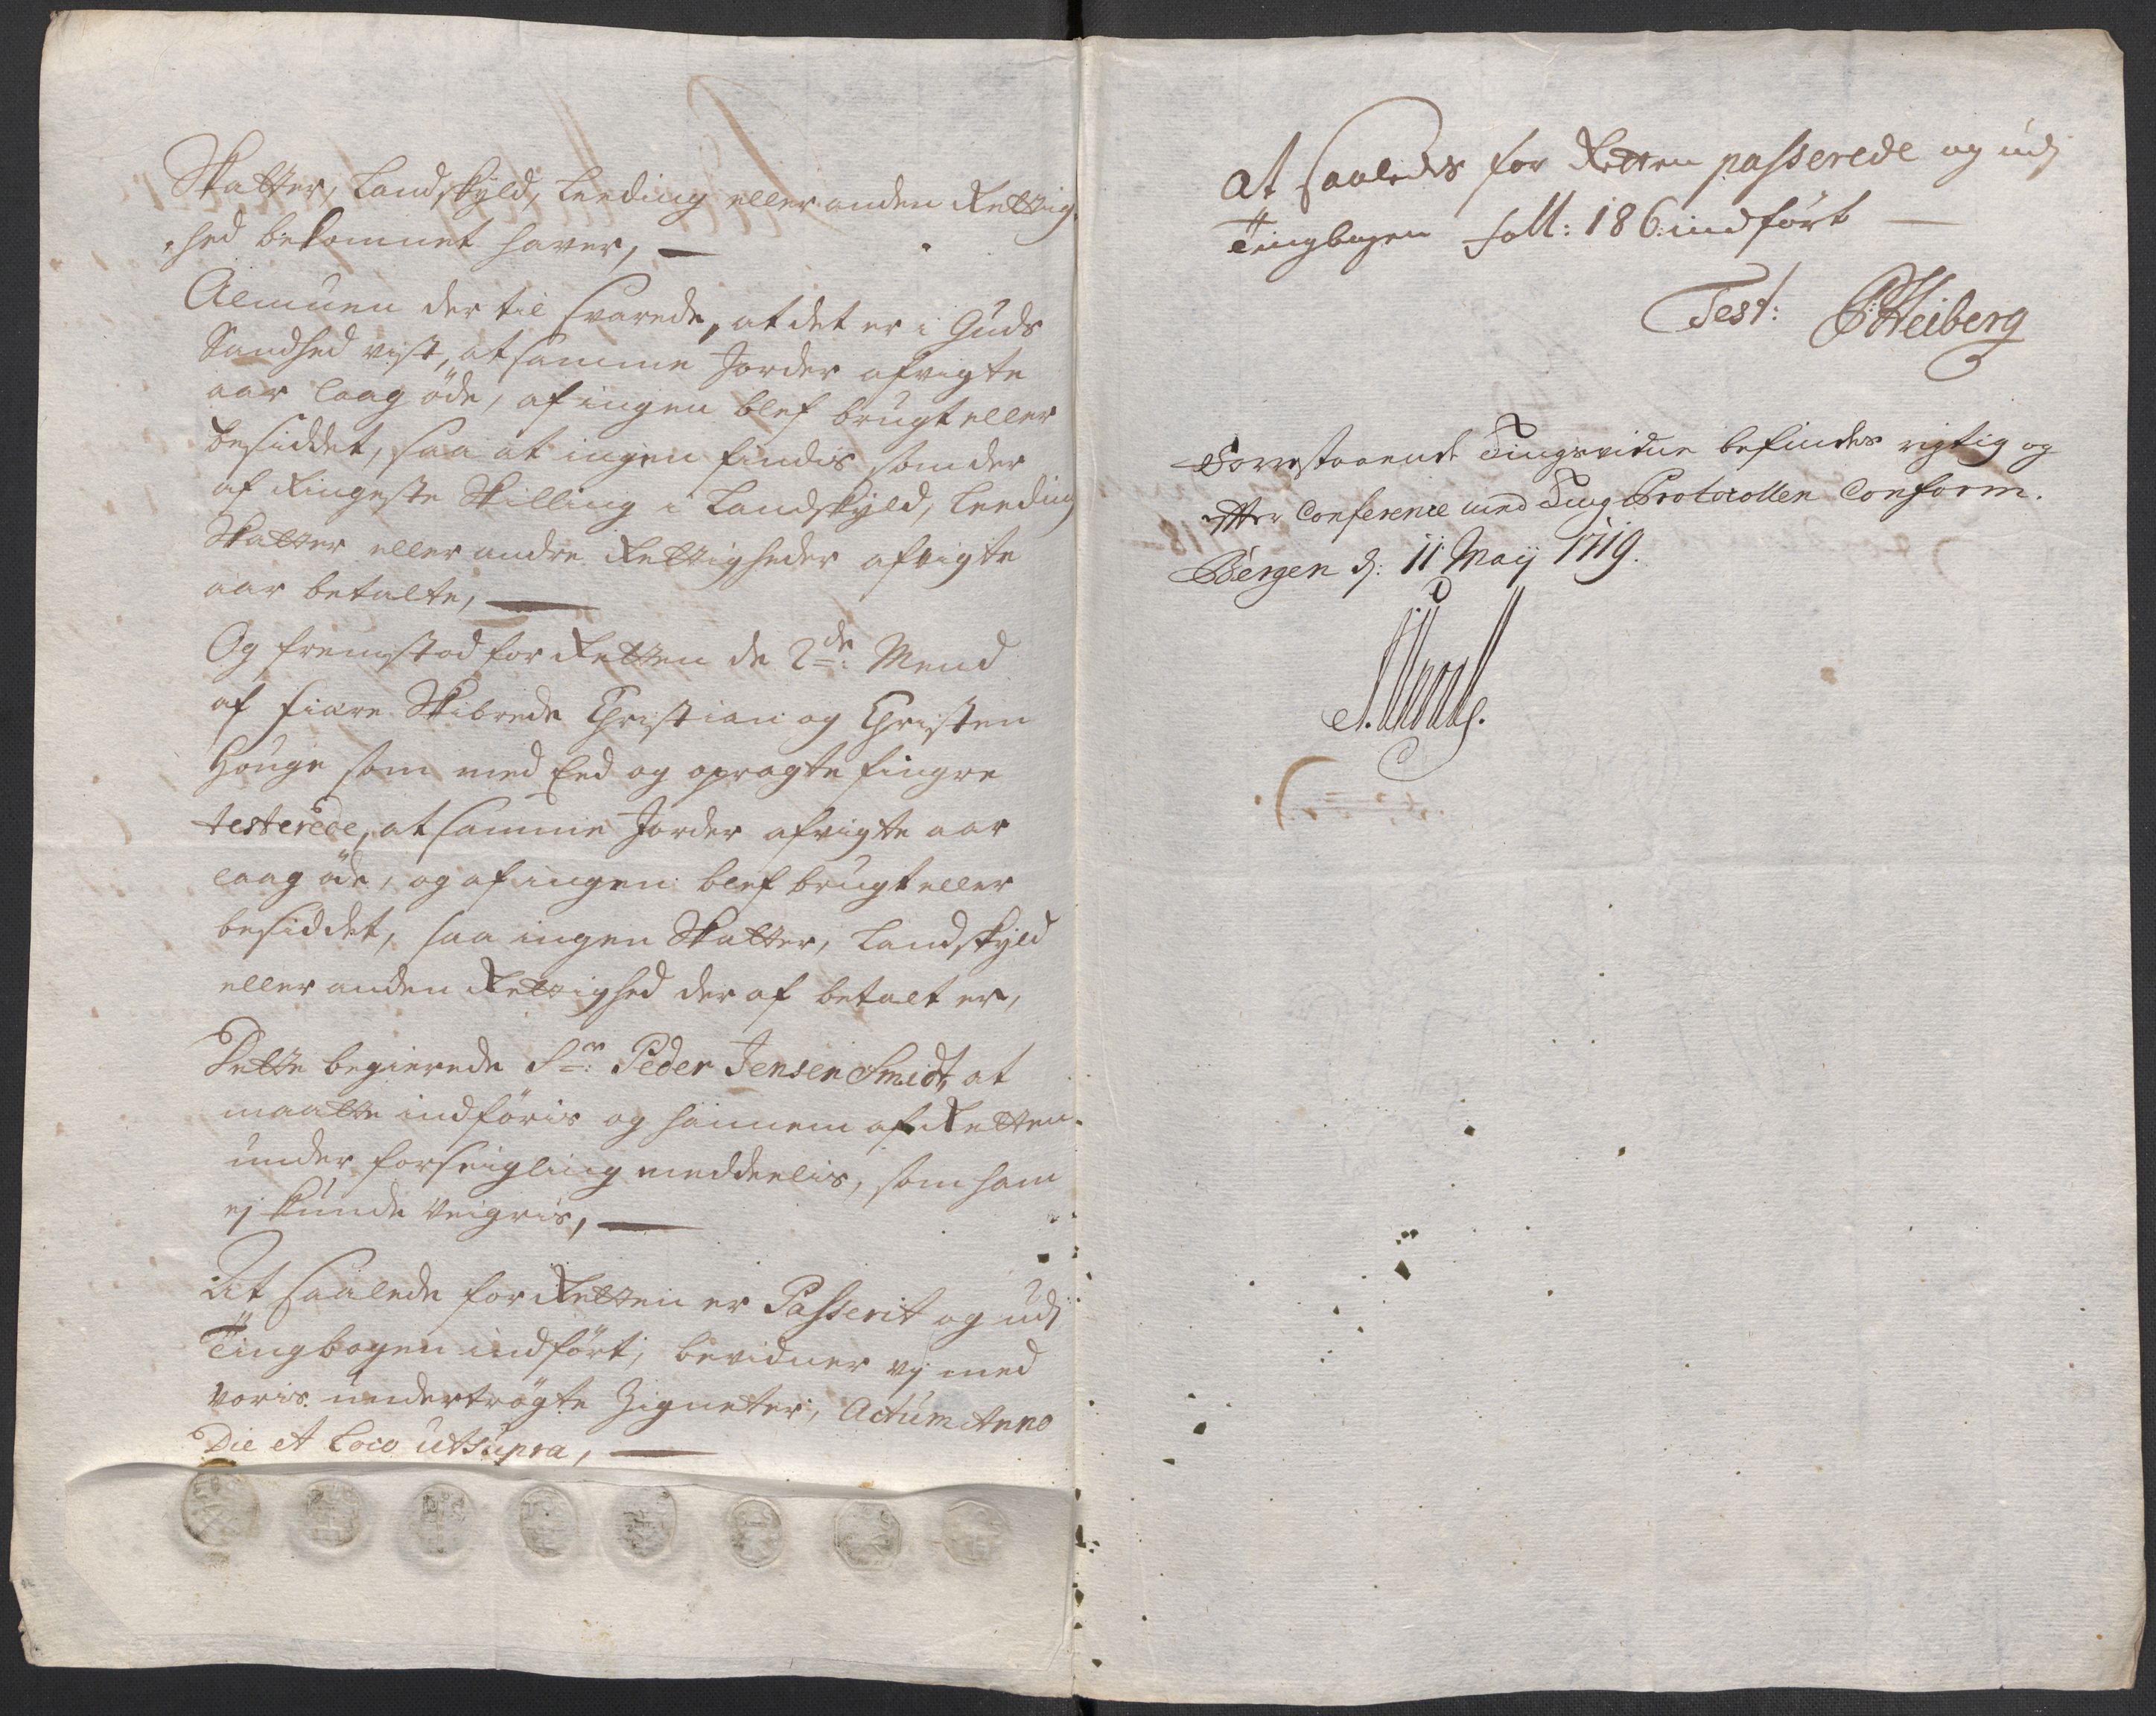 Skatter, Landskyld, Leeding eller anden Rettig
hed bekommet haver,
Almuen der til svarede, at det er i Guds
Sandhed vist, at samme Jorder afvigte
aar laag öde, af ingen blef brugt eller
besiddet, saa at ingen findis som der
af Ringeste Skilling i Landskyld, Leeding
Skatter eller andre Rettigheder afvigte
aar betalte,
Og fremstod for Retten de 2de: Mend
af fiære Skibrede Christian og Christen
Houge som med Eed og opragte fingre
testerede, at samme Jorder afvigte aar
laag öde, og af ingen blef brugt eller
besiddet, saa ingen Skatter, Landskyld
eller anden Rettighed der af betalt er,
Dette begierede Sr: Peder Jensen Smidt at
maatte indföris og hannem af Retten
under forseigling meddeelis, som ham
ej kunde veigris,
At saalede for Retten er Passerit og udj
Tingbogen indfört, bevidner vj med
voris undertrögte Zigneter, Actum Anno
Die et Loco utsupra,
at saaledes for Retten passerede og udj
Tingbogen foll: 186 indfört
Test: CHeiberg
Forrestaaende Tingsvidne befindes rigtig og
efter Conference med Ting Protocollen Conform.
Bergen d: 11 Maij 1719.